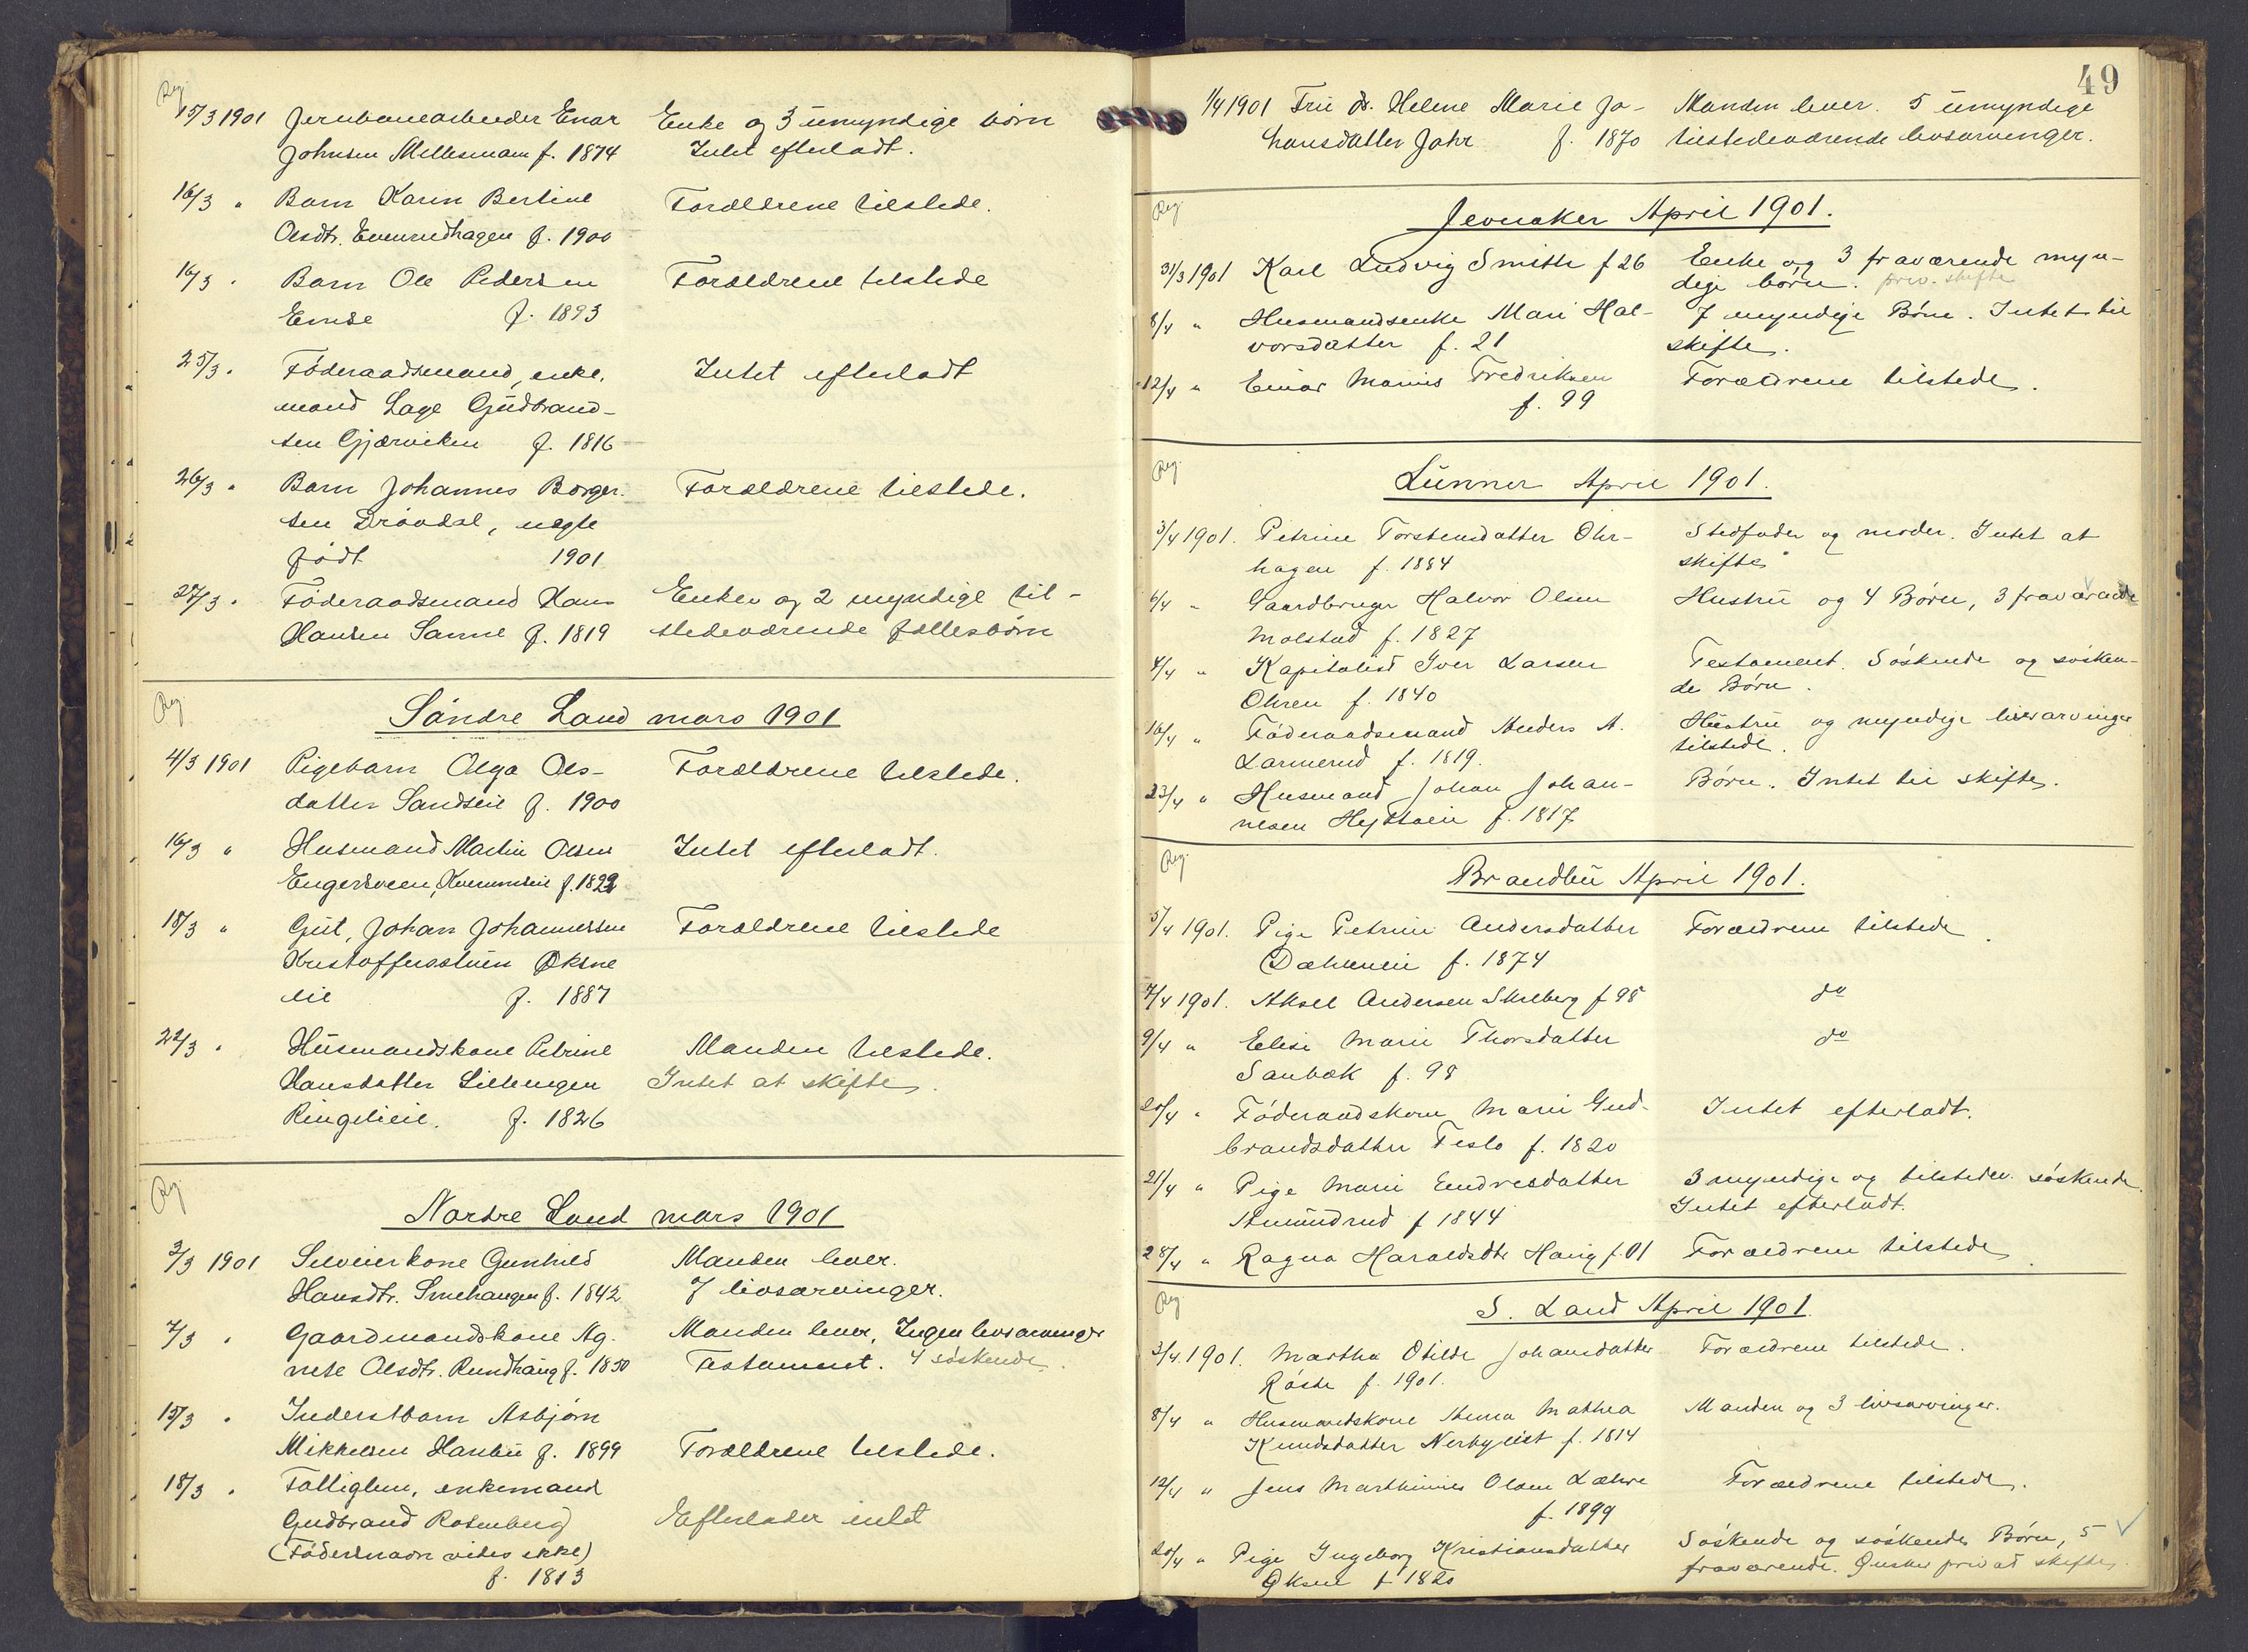 Reg.
15/3 1901 Jernbanearbeider Enar Enke og 3 umyndige børn
Johnsen Mellesmoen f. 1874 Intet efterladt.
16/3 " Barn Karin Bertine Forældrene tilstede.
Olsdtr. Evenrudhagen f. 1900
16/3 " Barn Ole Pedersen Forældrene tilstede
f. 1893
25/3 " Føderaadsmand, enke- Intet efterladt
mand Lage Gudbrand-
sen Gjærviken f. 1816
26/3 " Barn Johannes Borger- Forældrene tilstede.
sen Drøvdal, uægte
født 1901
27/3 " Føderaadsmand Hans Enken og 2 myndige til-
Hansen Sanne f. 1819 stedeværende fællesbørn
Reg.
Søndre Land mars 1901
4/3 1901 Pigebarn Olga Ols- Forældrene tilstede.
datter Sandseie f. 1900
16/3 " Husmand Martin Olsen Intet efterladt.
Engersveen, Kvernseie f. 1822
18/3 " Gut, Johan Johannessen Forældrene tilstede
Kristoffersstuen Øksne
lie f. 1887
22/3 " Husmandskone Petrine Manden tilstede.
Hansdatter Lillengen Intet at skifte.
Ringelieie. f. 1826
Reg.
Nordre Land mars 1901
3/3 1901 Selveierkone Gunhild Manden lever.
Hansdtr. Smehaugen f. 1842 7 livsarvinger.
7/3 " Gaardmandskone Ag- Manden lever, Ingen livsarvinger
nete Olsdtr. Rundhaug f. 1850 Testament. 4 søskende.
15/3 " Inderstbarn Asbjørn
Mikkelsen Haubu f. 1899 Forældrene tilstede.
18/3 " Fattiglem, enkemand
Gudbrand Rosenberg Efterlader intet
(Fødersnavn vides ikke)
f. 1813
49
1/4 1901 Fru Helene Marie Jo- Manden lever. 5 umyndige
hansdatter Jahr f. 1870 tilstedeværende livsarvinger.
Reg.
Jevnaker April 1901.
31/3 1901 Karl Ludvig Smith f 26 Enke og 3 fraværende myn-
dige børn. priv. skifte
8/4 " Husmandsenke Mari Hal- 7 myndige Børn. Intet til
vorsdatter f. 21 skifte.
12/4 " Einar Marius Fredriksen Forældrene tilstede.
f. 99
Reg.
Lunner April 1901.
3/4 1901. Petrine Torstensdatter Ohr- Stedfader og moder. Intet at
hagen f. 1884 skifte
6/4 " Gaardbruger Halvor Olsen Hustru og 4 Børn, 3 fraværende
Molstad f. 1827
4/4 " Kapitalist Iver Larsen Testament. Søskende og søsken-
Ohren f. 1840 de Børn.
16/4 " Føderaadsmand Anders A. Hustru og myndige livsarvinger
Larmerud f. 1819. tilstede.
23/4 " Husmand Johan Johan- Børn. Intet til skifte.
nesen Hytteeie f. 1817
Reg.
Brandbu April 1901.
5/4 1901. Pige Petrine Andersdatter Forældrene tilstede.
Dæhleneie f. 1874
7/4 1901. Aksel Andersen Skelberg f 98 do
9/4 " Elise Marie Thorsdatter do
Sanbæk f. 98
20/4 " Føderaadskone Marie Gud- Intet efterladt.
brandsdatter Teslo f. 1820
21/4 " Pige Marie Endresdatter 3 myndige og tilstedev. søskende.
Amundrud f 1844 Intet efterladt.
28/4 " Ragna Haraldsdtr Haug f. 01 Forældrene tilstede.
Reg.
S. Land April 1901.
3/4 1901. Martha Otilde Johansdatter Forældrene tilstede.
Røste f. 1901.
8/4 " Husmandskone Anna Mathea Manden og 3 livsarvinger.
Knudsdatter Nerbyeiet f. 1814
12/4 " Jens Marthinius Olsen Læhre Forældrene tilstede.
f. 1899
20/4 " Pige Ingeborg Kristiansdatter Søskende og søskendes Børn, 5
Øksne f 1820 fraværende. Ønsker privat skifte.